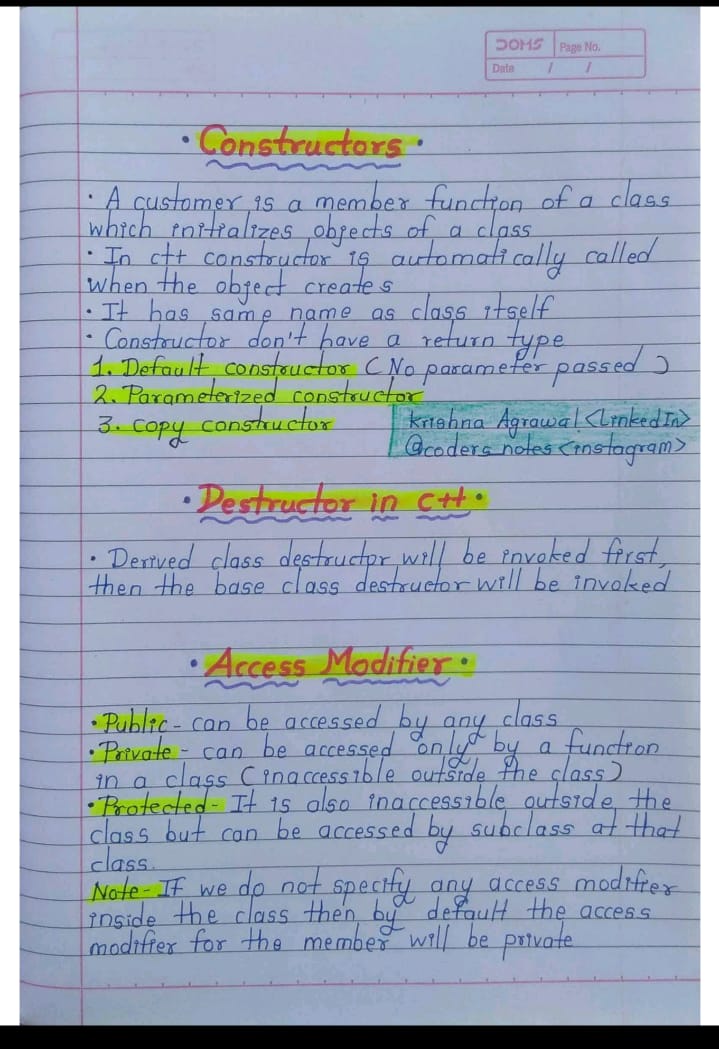 DOMS Page No.
Date / /
• Constructors •
• A customer is a member function of a class
which initializes objects of a class
• In c++ constructor is automatically called
when the object creates
• It has same name as class itself
• Constructor don't have a return type
1. Default constructor (No parameter passed)
2. Parameterized constructor
3. copy constructor
Krishna Agrawal <LinkedIn>
@coders notes <instagram>
• Destructor in c++ •
• Derived class destructor will be invoked first,
then the base class destructor will be invoked
• Access Modifier •
• Public - can be accessed by any class
• Private - can be accessed only by a function
in a class (inaccessible outside the class)
• Protected - It is also inaccessible outside the
class but can be accessed by subclass at that
class.
Note - If we do not specify any access modifier
inside the class then by default the access
modifier for the member will be private